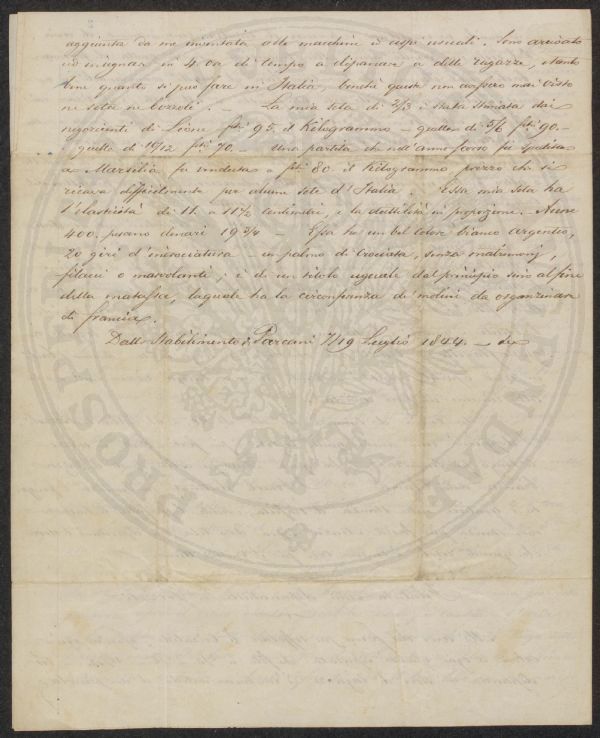 aggiunta da me inventata alle macchine o aspi usuali. Sono arrivato
ad insegnar in 4 ore di tempo a dipanare a delle ragazze, tanto
bene quanto si può fare in Italia, benché queste non avessero mai visto
ne seta ne bozzoli. — La mia seta di 2/3 è stata stimata dai
negozianti di Lione fchi 95. il Kilogrammo — quella di 5/6 fchi 90. —
e quella di 10/12 fchi 70. — Una partita che nell'anno scorso fu spedita
a Marsilia, fu venduta a fchi 80 il Kilogrammo prezzo che si
ricava difficilmente per alcune sete d'Italia. Essa mia seta ha
l'elasticità di 11. a 11½ centimetri, e la duttilità in proporzione. — Aune
400. pesano denari 19 3/4 — Essa ha un bel colore bianco argenteo,
20 giri d'incrociatura — un palmo di crociata, senza matrimonj,
filacci o mascolanti; è di un titolo uguale dal principio sino al fine
della matassa, la quale ha la circonferenza di molini da organzinare
di francia.
Dallo Stabilimento di Parcani 7/19 Luglio 1844. —
PROSPE ENDAE